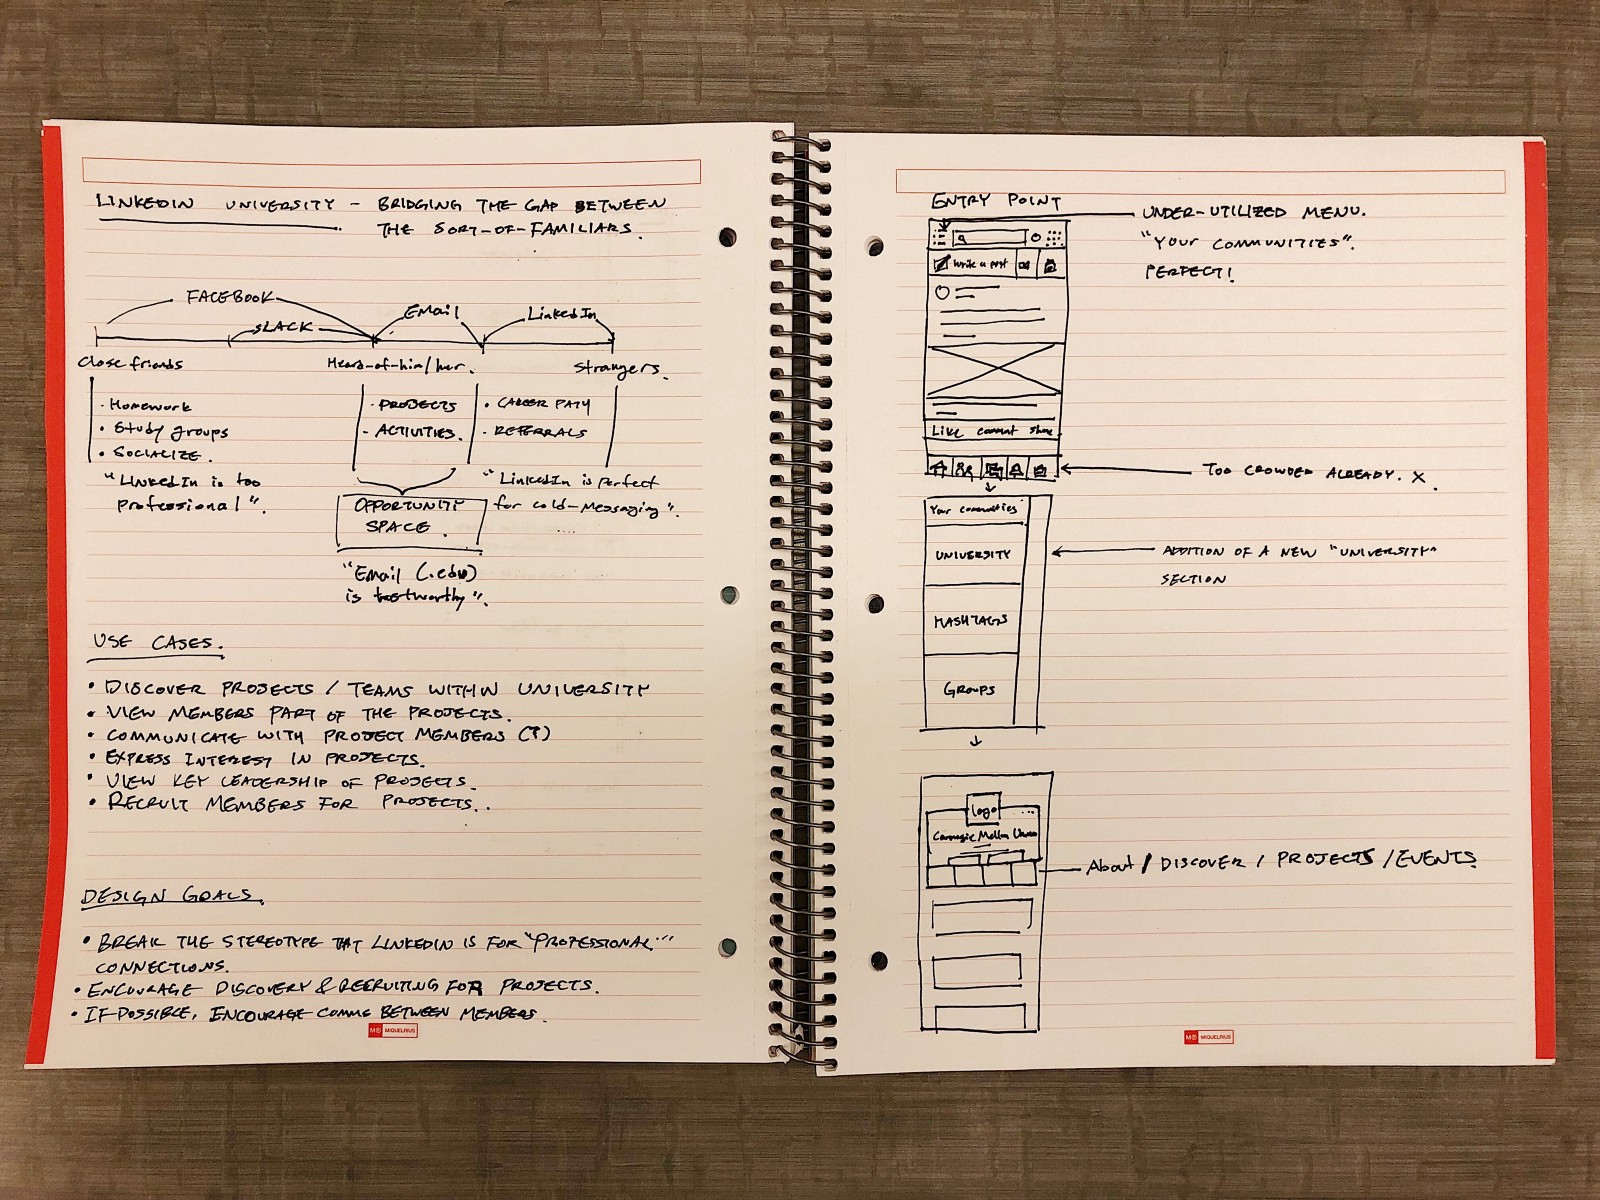 LINKEDIN UNIVERSITY – BRIDGING THE GAP BETWEEN
THE SORT-OF-FAMILIARS.
FACEBOOK
SLACK
Email
LinkedIn
Close friends
Heard-of-him/her.
Strangers.
· Homework
· Study groups
· SOCIALIZE.
- PROJECTS
- ACTIVITIES.
· CAREER PATH
- REFERRALS
"LinkedIn is too
professional".
OPPORTUNITY
SPACE.
"LinkedIn is perfect
for cold-messaging".
....
"Email (.edu)
is trustworthy".
USE CASES.
• DISCOVER PROJECTS / TEAMS WITHIN UNIVERSITY
• VIEW MEMBERS PART OF THE PROJECTS.
• COMMUNICATE WITH PROJECT MEMBERS (?)
• EXPRESS INTEREST IN PROJECTS.
• VIEW KEY LEADERSHIP OF PROJECTS.
• RECRUIT MEMBERS FOR PROJECTS..
DESIGN GOALS.
• BREAK THE STEREOTYPE THAT LINKEDIN IS FOR "PROFESSIONAL"
CONNECTIONS.
• ENCOURAGE DISCOVERY & RECRUITING FOR PROJECTS.
• IF POSSIBLE, ENCOURAGE COMMS BETWEEN MEMBERS.
MIQUELRIUS
ENTRY POINT
UNDER-UTILIZED MENU.
"YOUR COMMUNITIES".
PERFECT!
Write a post
Like comment share
TOO CROWDED ALREADY. X.
Your communities
UNIVERSITY
ADDITION OF A NEW "UNIVERSITY"
SECTION
HASHTAGS
GROUPS
logo
...
Carnegie Mellon
About / DISCOVER / PROJECTS / EVENTS
MIQUELRIUS